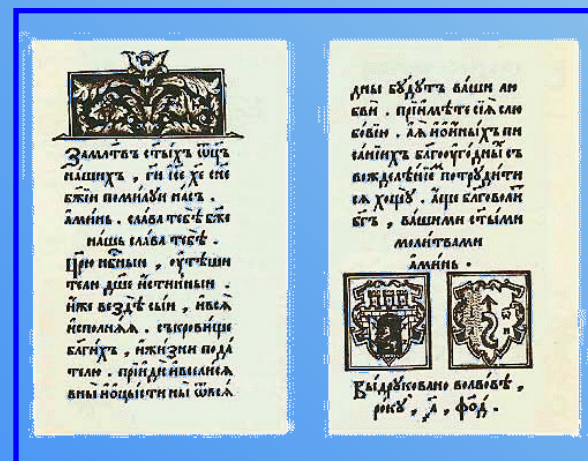 Замл҃твъ ст҃ы́хъ ѿц҃ъ
на́шихъ , г҃и і҆с҃е х҃е сн҃е
бж҃їи поми́луи на́съ .
А҆ми́нь . сла́ва тебѣ̀ бж҃е
на́шь сла́ва тебѣ̀ .
Цр҃ю нб҃ныи , оу҆тѣ́ши
телю дш҃е и҆́стинныи .
и҆́же вездѣ̀ сы́и , и҆всѧ̀
и҆сполнѧ́ѧ . съкро́вище
бл҃ги́хъ , и҆жи́зни пода́
телю . прїидѝ и҆всели́сѧ
вны̀ и҆ѡ҆чи́сти ны̀ ѿвсѧ́
дны бу́дутъ ва́ши лю
бви̑ . прїимѣ́те сїѧ̀ слю
бо́вїю . а҆́ѧ и҆ѡ҆и҆ны́хъ пи
са́нїихъ бл҃гоо҆уго́дныⷯ съ
вожделѣ́нїеⷨ потруди́ти
сѧ хощу̀ . а҆́ще бл҃говоли́ⷮ
бг҃ъ , ва́шими ст҃ы́ми
моли́твами
а҆ми́нь .
Вы́друковано волво́вѣ ,
ро́ку , ҂а҃ , фо҃д .